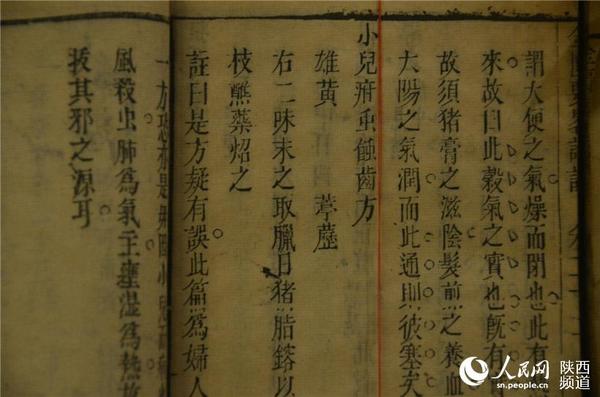 謂大便之氣燥而閉也此有
來故曰此穀氣之實也旣有
故須猪膏之滋陰髮煎之養血
大陽之氣潤而此通則彼塞矣
小兒疳虫蝕齒方
雄黃 葶藶
右二味末之取臘日猪脂鎔以
枝點藥烙之
註曰是方疑有誤此篇爲婦人
一方恐亦是
風殺虫肺爲氣主壅濕爲熱故
拔其邪之源耳
人民网 陕西频道
sn.people.cn